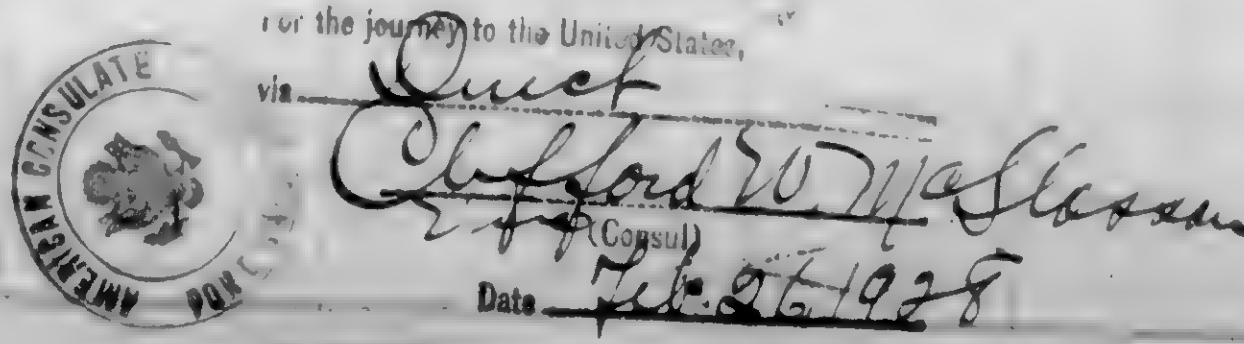 For the journey to the United States,
via Direct
Clifford W. McGlasson
(Consul)
Date Feb. 26 1928
AMERICAN CONSULATE